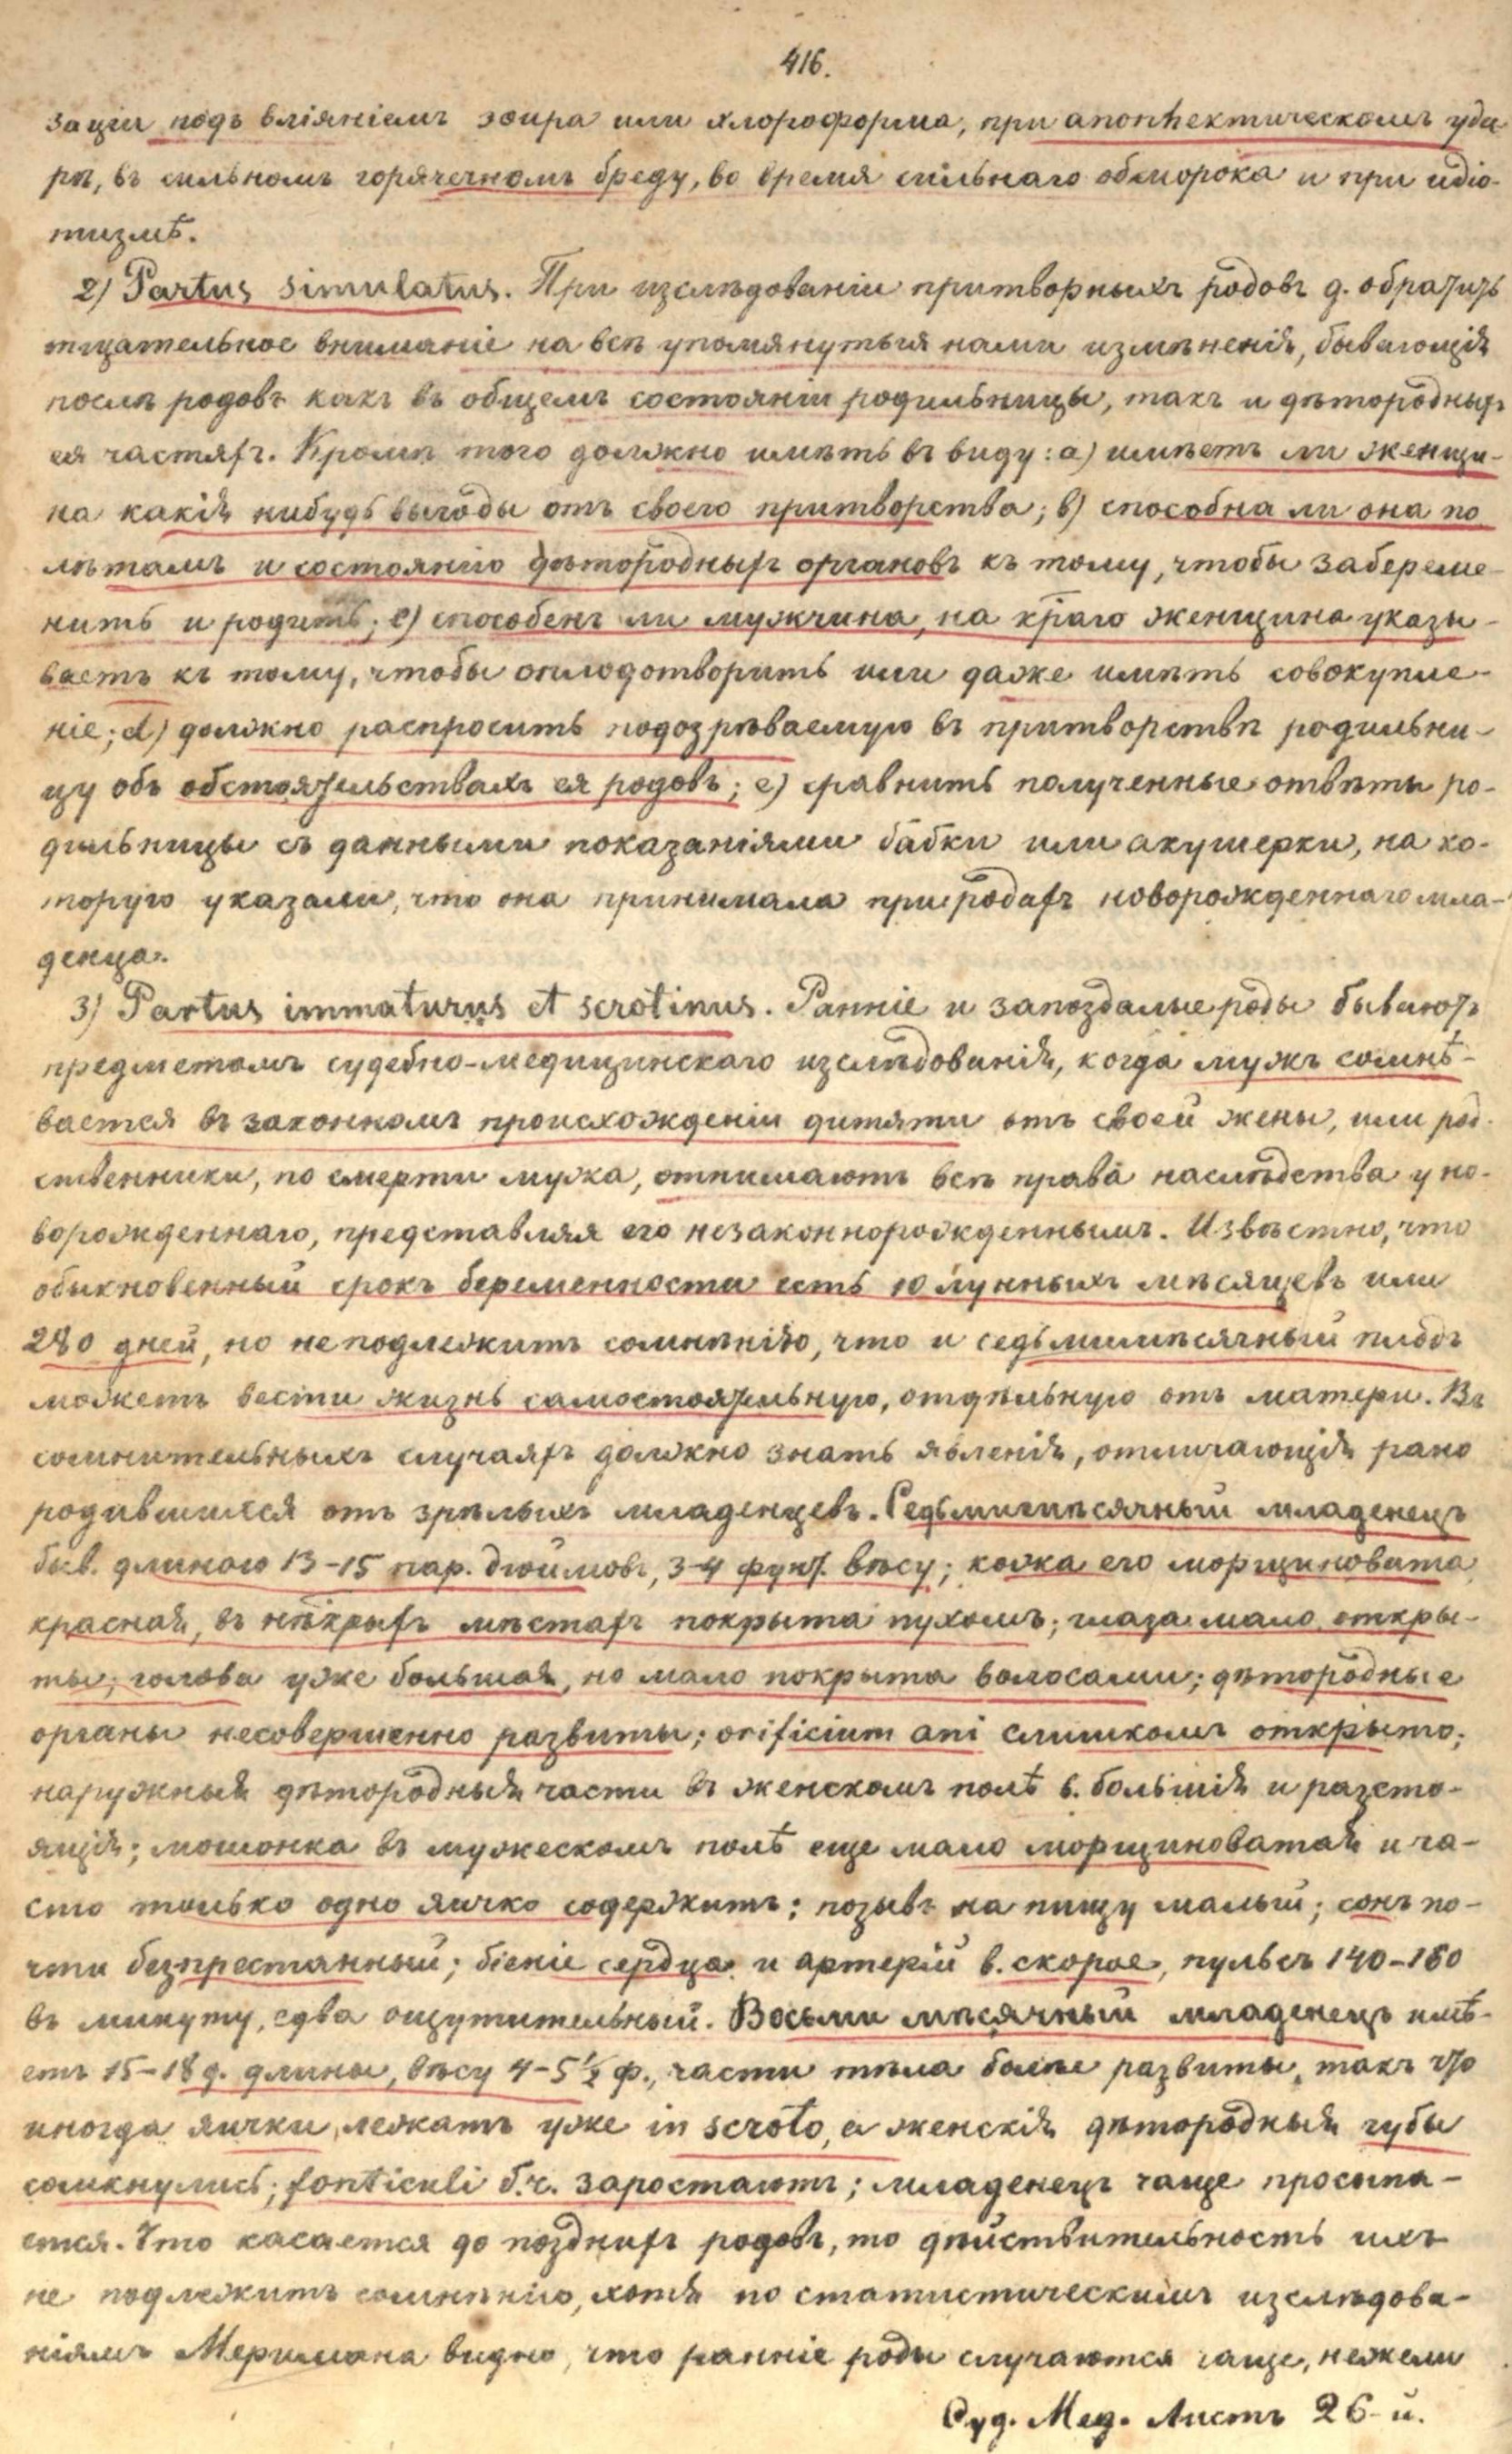 416.
заціи подъ вліяніемъ эѳира или хлороформа, при апоплектическомъ уда-
рѣ, въ сильномъ горячечномъ бреду, во время сильнаго обморока и при идіо-
тизмѣ.
2) Partus simulatus. При изслѣдованіи притворныхъ родовъ д. обратить
тщательное вниманіе на всѣ упомянутыя нами измѣненія, бывающія
послѣ родовъ какъ въ общемъ состояніи родильницы, такъ и дѣтородныхъ
ея частяхъ. Кромѣ того должно имѣть въ виду: a) имѣетъ ли женщи-
на какія нибудь выгоды отъ своего притворства; b) способна ли она по
лѣтамъ и состоянію дѣтородныхъ органовъ къ тому, чтобы забереме-
нить и родить; c) способенъ ли мужчина, на кraго женщина указы-
ваетъ къ тому, чтобы оплодотворить или даже имѣть совокупле-
ніе; d) должно распросить подозрѣваемую въ притворствѣ родильни-
цу объ обстоятельствахъ ея родовъ; e) сравнить полученные отвѣты ро-
дильницы съ данными показаніями бабки или акушерки, на ко-
торую указали, что она принимала при родахъ новорожденнаго мла-
денца.
3) Partus immaturus et serotinus. Ранніе и запоздалые роды бываютъ
предметомъ судебно-медицинскаго изслѣдованія, когда мужъ сомнѣ-
вается въ законномъ происхожденіи дитяти отъ своей жены, или род-
ственники, по смерти мужа, отнимаютъ всѣ права наслѣдства у но-
ворожденнаго, представляя его незаконнорожденнымъ. Извѣстно, что
обыкновенный срокъ беременности есть 10 лунныхъ мѣсяцевъ или
280 дней, но не подлежитъ сомнѣнію, что и седьмимѣсячный плодъ
можетъ вести жизнь самостоятельную, отдѣльную отъ матери. Въ
сомнительныхъ случаяхъ должно знать явленія, отличающія рано
родившихся отъ зрѣлыхъ младенцевъ. Седьмимѣсячный младенецъ
быв. длиною 13-15 пар. дюймовъ, 3-4 фунт. вѣсу; кожа его морщиновата
красная, въ нѣкрыхъ мѣстахъ покрыта пухомъ; глаза мало откры-
ты; голова уже большая, но мало покрыта волосами; дѣтородные
органы несовершенно развиты; orificium ani слишкомъ открыто;
наружныя дѣтородныя части въ женскомъ полѣ в. большія и разсто-
ящія; мошонка въ мужескомъ полѣ еще мало морщиноватая и ча-
сто только одно яичко содержитъ; позывъ на пищу малый; сонъ по-
чти безпрестанный; біеніе сердца и артерій в. скорое, пульсъ 140-160
въ минуту, едва ощутительный. Восьми мѣсячный младенецъ имѣ-
етъ 15-18 д. длины, вѣсу 4-5½ ф., части тѣла болѣе развиты, такъ что
иногда яички лежатъ уже in scroto, а женскія дѣтородныя губы
сомкнулись; fonticuli б.ч. заростаютъ; младенецъ чаще просыпа-
ется. Что касается до позднихъ родовъ, то дѣйствительность ихъ
не подлежитъ сомнѣнію, хотя по статистическимъ изслѣдова-
ніямъ Меримана видно, что ранніе роды случаются чаще, нежели
Суд. Мед. Листъ 26-й.